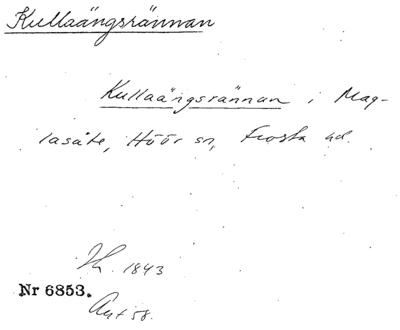 Kullaängsrännan
Kullaängsrännan i Mag-
lasäte, Höör sn, Frosta hd.
1843
Nr 6853.